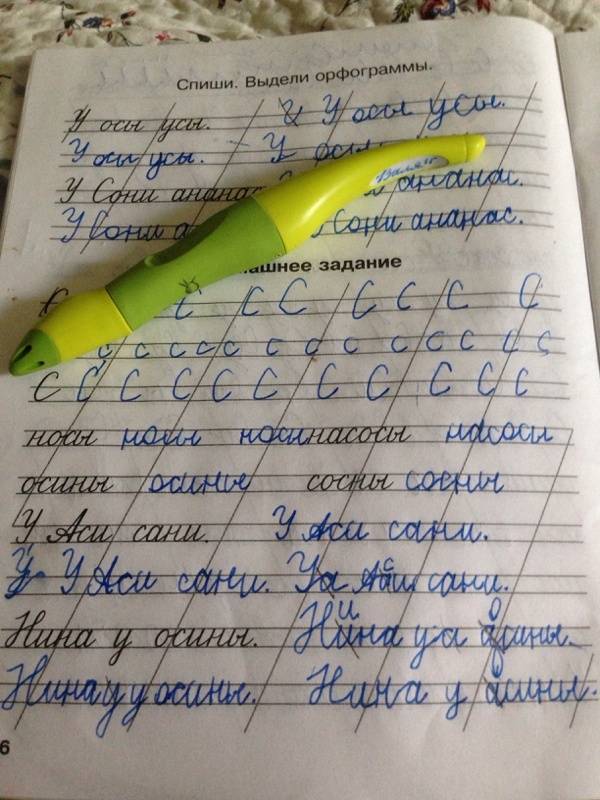 Спиши. Выдели орфограммы.
У осы усы. У осы усы.
У осы усы. У осы
У Сони ананас ананас.
У Сони а Сони ананас.
Валя
машнее задание
С С С С С С С
с с с с с с с с с с с
С С С С С С С С С С С
носы носы носы насосы насосы
осины осины сосны сосны
У Аси сани. У Аси сани.
У У Аси сани. Уа Аси сани.
Нина у осины. Нина уа осины.
Нина у у осины. Нина у осины.
6